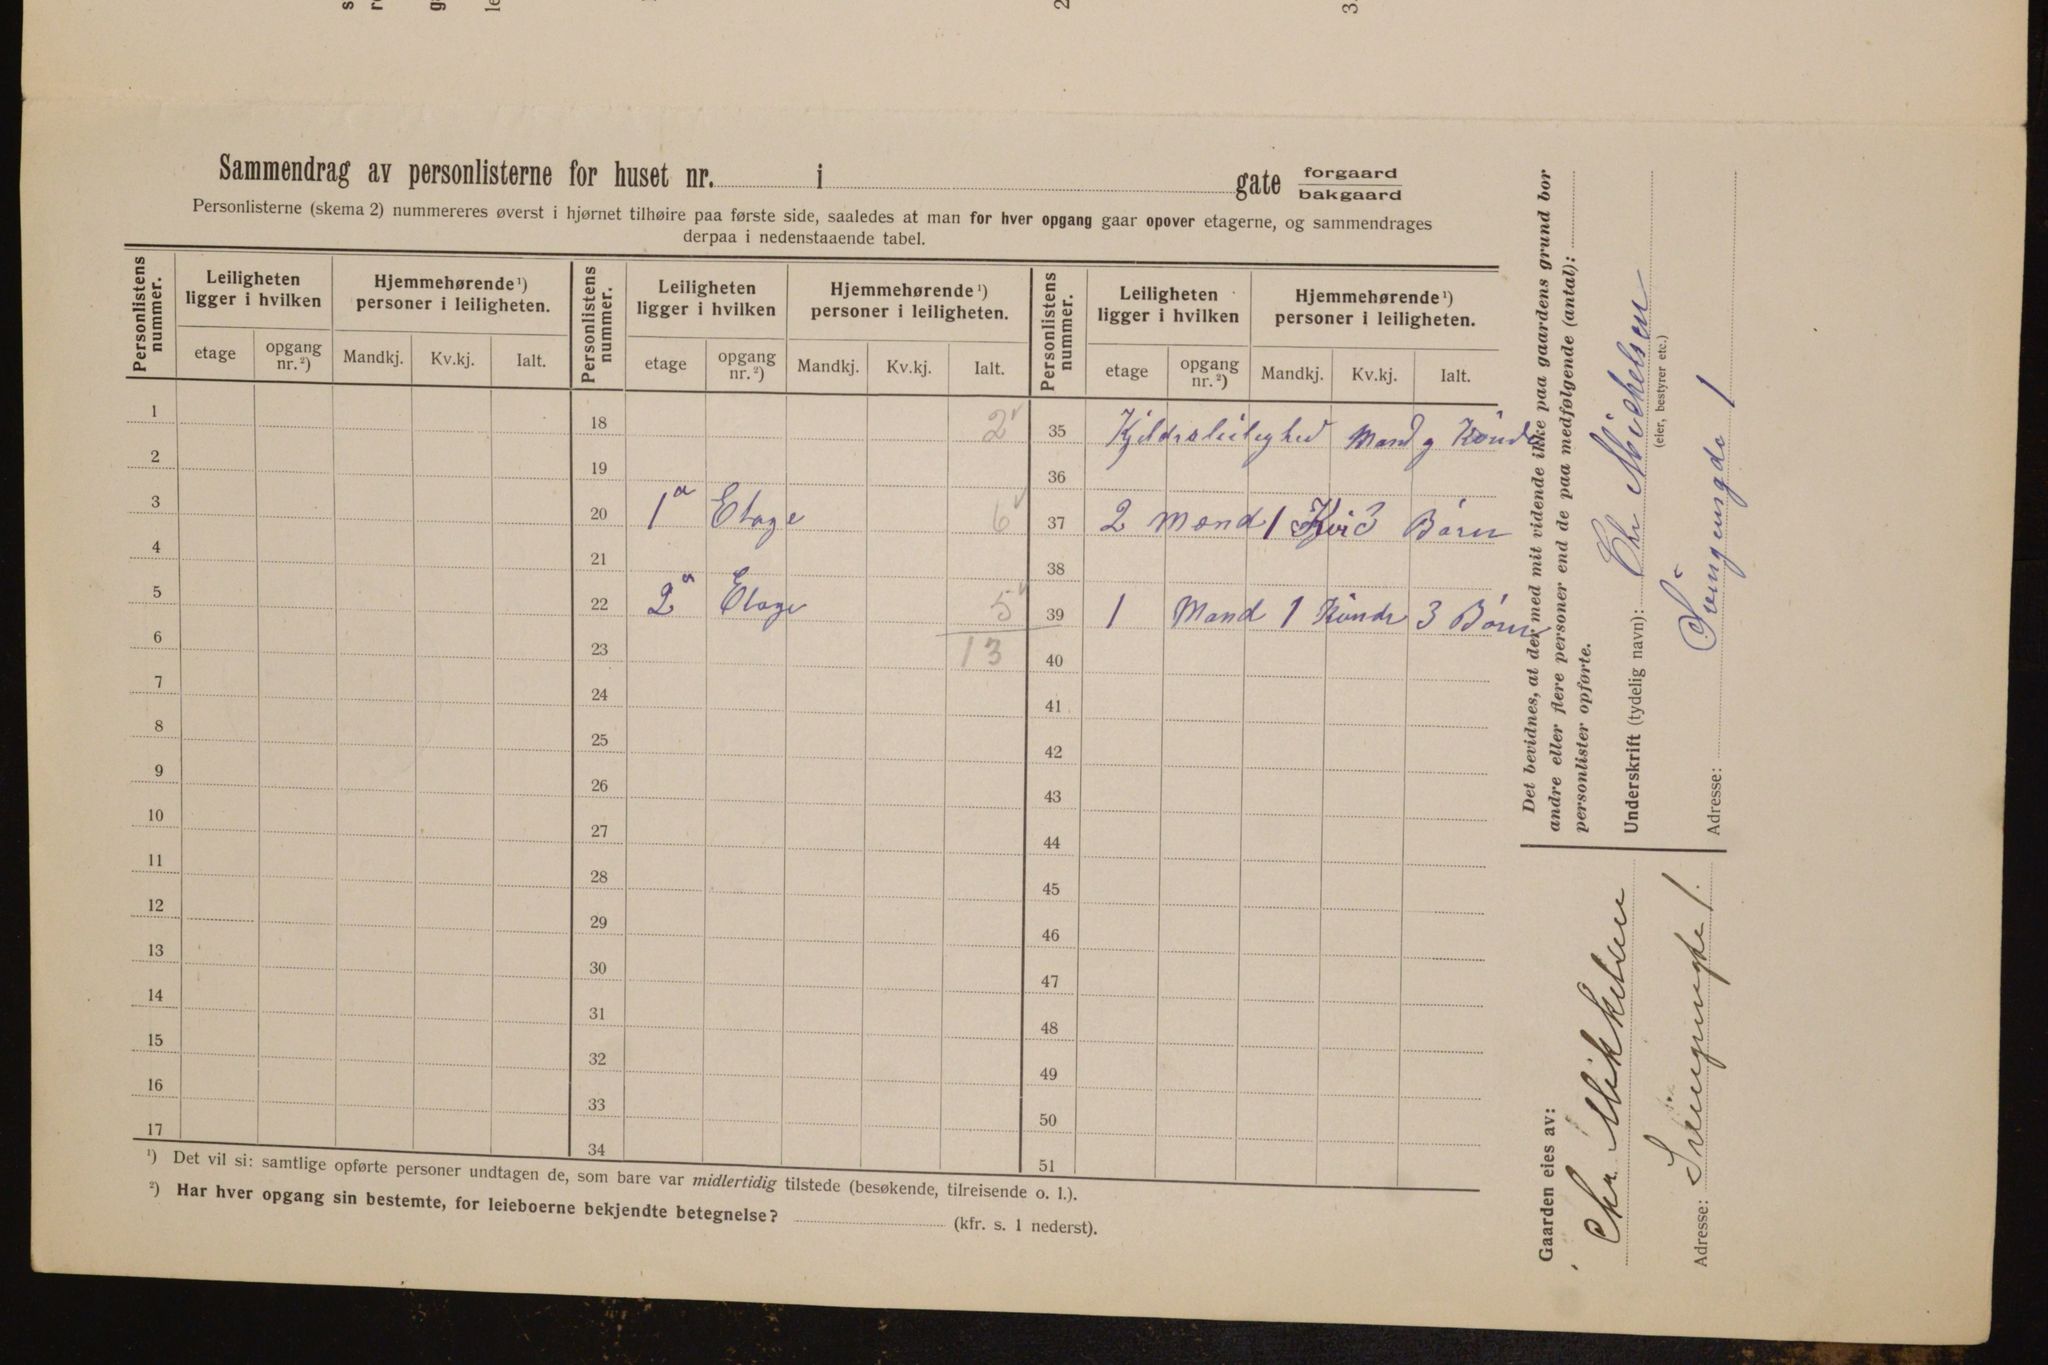 Sammendrag av personlisterne for huset nr. i gate forgaard bakgaard
Personlisterne (skema 2) nummereres øverst i hjørnet tilhøire paa første side, saaledes at man for hver opgang gaar opover etagerne, og sammendrages
derpaa i nedenstaaende tabel.
Personlistens nummer. Leiligheten ligger i hvilken Hjemmehørende ¹) personer i leiligheten. Personlistens nummer. Leiligheten ligger i hvilken Hjemmehørende ¹) personer i leiligheten. Personlistens nummer. Leiligheten ligger i hvilken Hjemmehørende ¹) personer i leiligheten.
etage opgang nr. ²) Mandkj. Kv.kj. Ialt. etage opgang nr. ²) Mandkj. Kv.kj. Ialt. etage opgang nr. ²) Mandkj. Kv.kj. Ialt.
1 18 2 35 Kjeldrsleilighed Mand og Kone
2 19 36
3 20 1a Etage 6 37 2 Mænd 1 Kvi 3 Børn
4 21 38
5 22 2a Etage 5 39 1 Mand 1 Kvinde 3 Børn
6 23 13 40
7 24 41
8 25 42
9 26 43
10 27 44
11 28 45
12 29 46
13 30 47
14 31 48
15 32 49
16 33 50
17 34 51
¹) Det vil si: samtlige opførte personer undtagen de, som bare var midlertidig tilstede (besøkende, tilreisende o. l.).
²) Har hver opgang sin bestemte, for leieboerne bekjendte betegnelse? (kfr. s. 1 nederst).
Det bevidnes, at der med mit vidende ikke paa gaardens grund bor
andre eller flere personer end de paa medfølgende (antal):
personlister opførte.
Underskrift (tydelig navn): Chr Michelsen
(eier, bestyrer etc.)
Adresse: 1
Gaarden eies av:
Chr Mikkelsen
Adresse: 1.